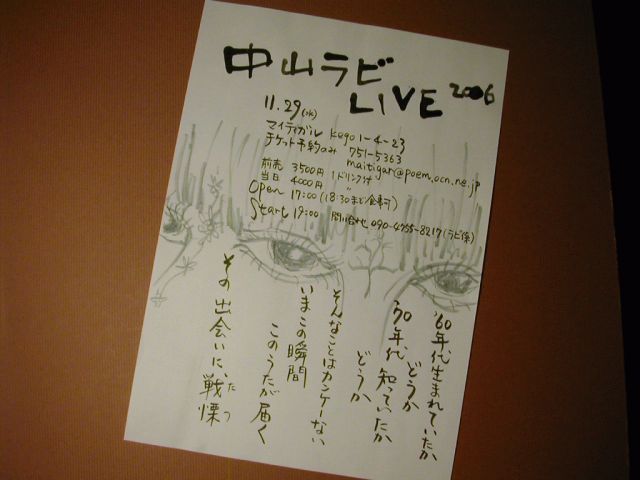 中山ラビ
LIVE 2006
11.29(水)
マイティガル kego 1-4-23
チケット予約のみ 751-5363
maitigar@poem.ocn.ne.jp
前売 3500円 1ドリンク付
当日 4000円 〃
Open 17:00 (18:30まで食事可)
Start 19:00 問い合わせ 090-4755-8217(ラビ係)
'60年代生まれていたか
どうか
'70年代、知っていたか
どうか
そんなことはカンケーない
いまこの瞬間
このうたが届く
その出会いに、戦慄たつ